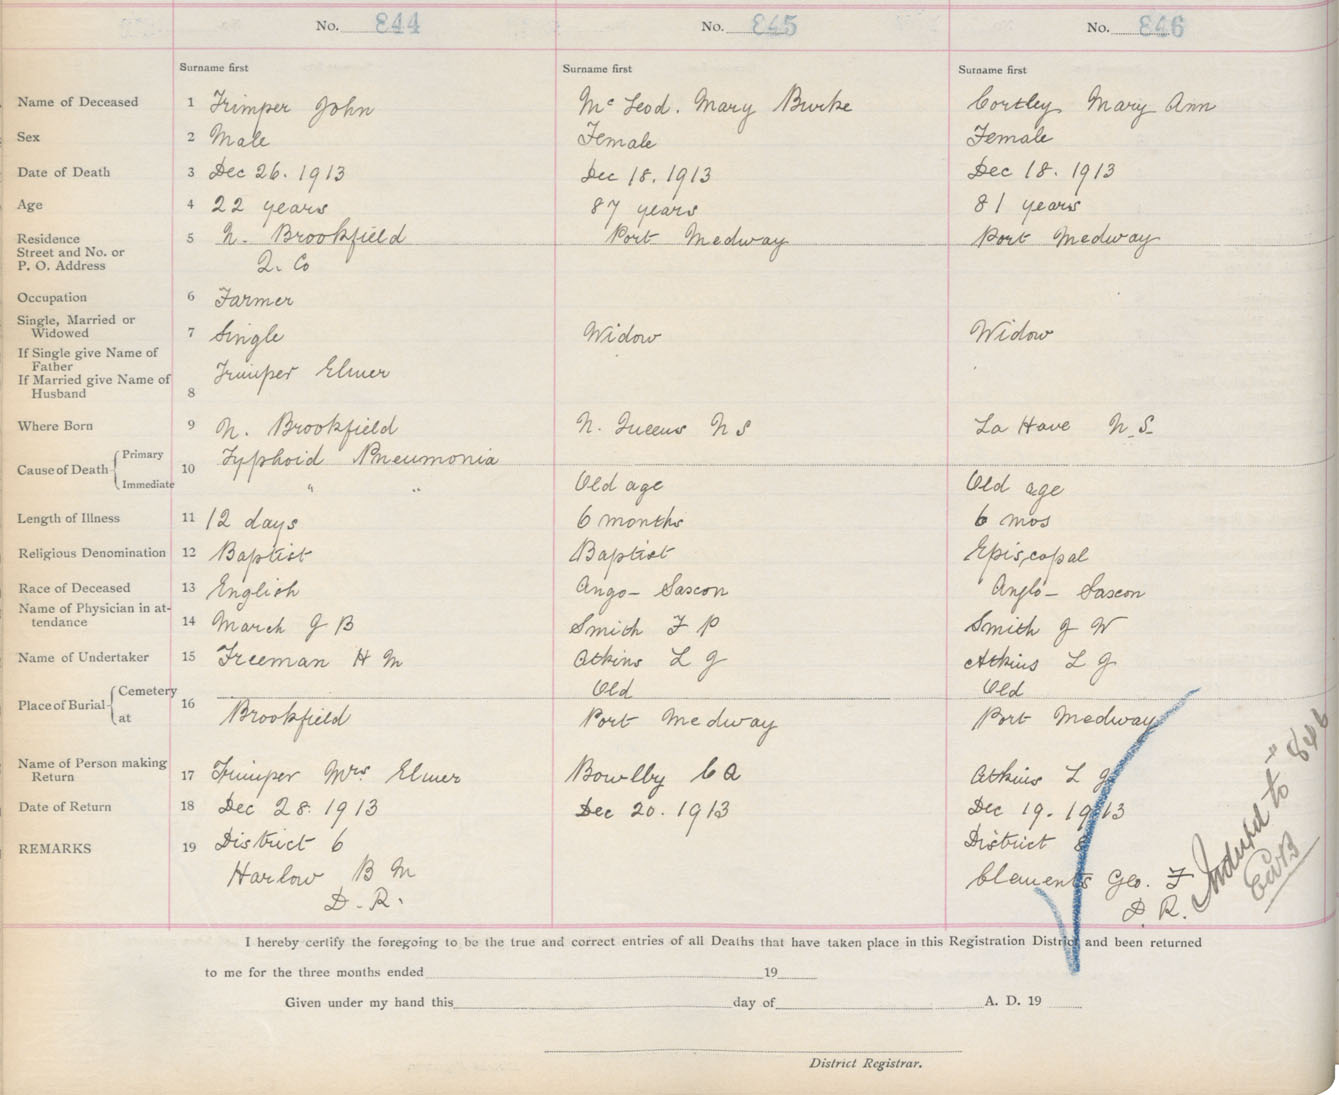 No. 844 No. 845 No. 846
Surname first Surname first Surname first
Name of Deceased 1 Trimper John McLeod. Mary Burke Cortley Mary Ann
Sex 2 Male Female Female
Date of Death 3 Dec 26. 1913 Dec 18. 1913 Dec 18. 1913
Age 4 22 years 87 years 81 years
Residence 5 N. Brookfield Port Medway Port Medway
Street and No. or
P. O. Address Q. Co
Occupation 6 Farmer
Single, Married or
Widowed 7 Single Widow Widow
If Single give Name of
Father Trimper Elmer
If Married give Name of
Husband 8
Where Born 9 N. Brookfield N. Queens N S La Have N. S.
Cause of Death Primary 10 Typhoid Pneumonia
Immediate " " Old age Old age
Length of Illness 11 12 days 6 months 6 mos
Religious Denomination 12 Baptist Baptist Episcopal
Race of Deceased 13 English Ango- Saxcon Anglo- Saxcon
Name of Physician in at-
tendance 14 March J B Smith F P Smith J W
Name of Undertaker 15 Freeman H M Atkins L J Atkins L J
Place of Burial Cemetery 16 Old Old
at Brookfield Port Medway Port Medway
Name of Person making
Return 17 Trimper Mrs Elmer Bowlby C A Atkins L J
Date of Return 18 Dec 28. 1913 Dec 20. 1913 Dec 19. 1913
REMARKS 19 District 6 District 8
Harlow B M Clements Geo. F
D. R. D R.
to 846
I hereby certify the foregoing to be the true and correct entries of all Deaths that have taken place in this Registration District and been returned
to me for the three months ended 19
Given under my hand this day of A. D. 19
District Registrar.